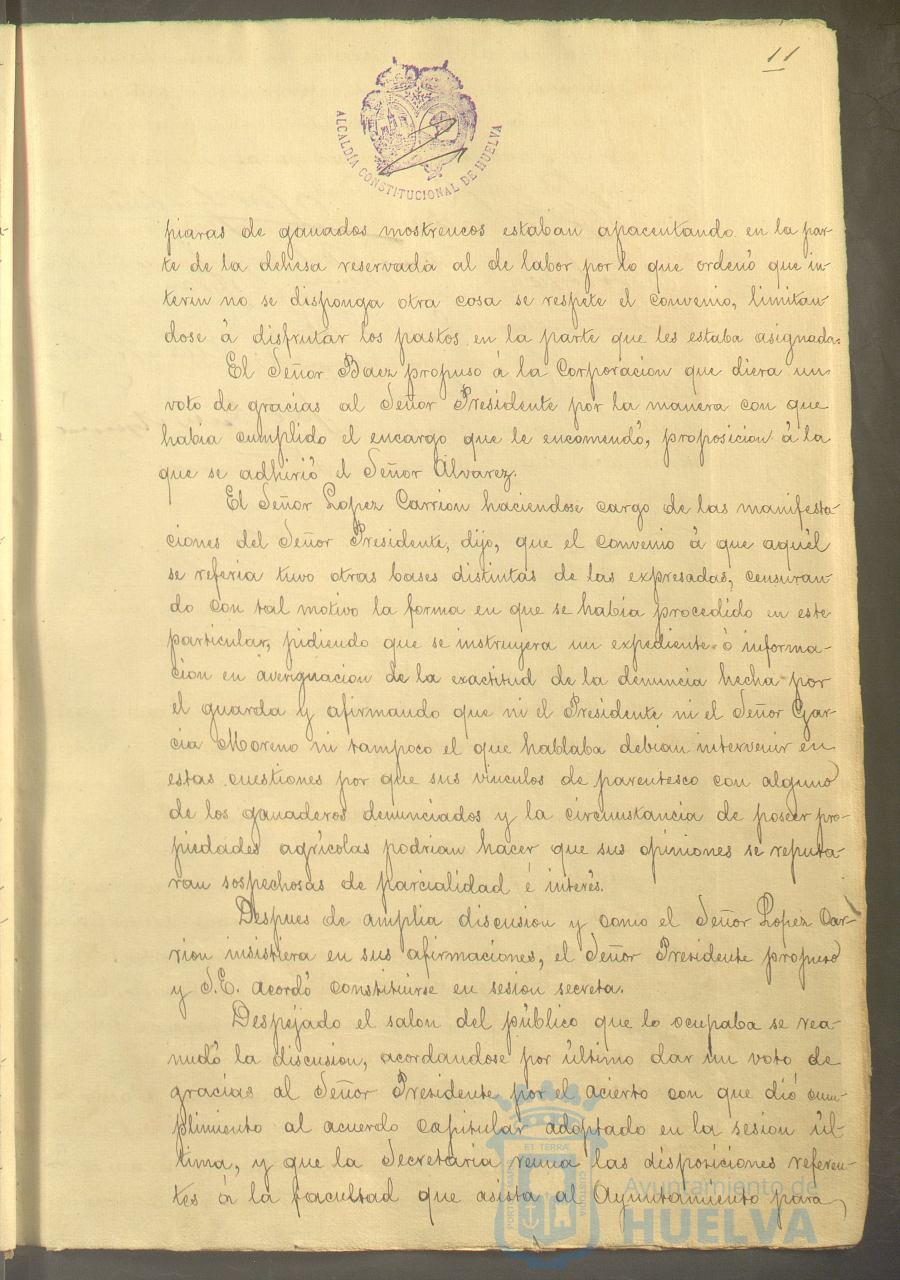 11
ALCALDÍA CONSTITUCIONAL DE HUELVA
piaras de ganados mostrencos estaban apacentando en la par-
te de la dehesa reservada al de labor por lo que ordenó que in-
terin no se disponga otra cosa se respete el convenio, limitan-
dose á disfrutar los pastos en la parte que les estaba asignada.
El Señor Baez propuso á la Corporacion que diera un
voto de gracias al Señor Presidente por la manera con que
habia cumplido el encargo que le encomendó, proposicion á la
que se adhirió el Señor Alvarez.
El Señor Lopez Carrion haciendose cargo de las manifesta-
ciones del Señor Presidente, dijo, que el convenio á que aquél
se referia tuvo otras bases distintas de las expresadas, censuran-
do con tal motivo la forma en que se habia procedido en este
particular, pidiendo que se instruyera un expediente ó informa-
cion en averignacion de la exactitud de la denuncia hecha por
el guarda y afirmando que ni el Presidente ni el Señor Gar-
cia Moreno ni tampoco el que hablaba debian intervenir en
estas cuestiones por que sus vínculos de parentesco con alguno
de los ganaderos denunciados y la circunstancia de poseer pro-
piedades agrícolas podrian hacer que sus opiniones se reputa-
ran sospechosas de parcialidad é interés.
Despues de amplia discusion y como el Señor Lopez Car-
rion insistiera en sus afirmaciones, el Señor Presidente propuso
y S.E. acordó constituirse en sesion secreta.
Despejado el salon del público que lo ocupaba se rea-
nudó la discusion, acordandose por último dar un voto de
gracias al Señor Presidente por el acierto con que dió cum-
plimiento al acuerdo capitular adoptado en la sesion úl-
tima, y que la Secretaria reuna las disposiciones referen-
tes á la facultad que asista al Ayuntamiento para
ET TERRÆ
PORTUS MARIS
CUSTODIA
Ayuntamiento de
HUELVA